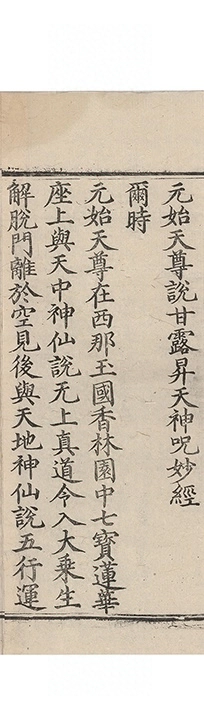 元始天尊說甘露昇天神呪妙經
爾時
元始天尊在西那玉國香林園中七寶蓮華
座上與天中神仙說无上真道令入大乗生
解脫門離於空見後與天地神仙說五行運